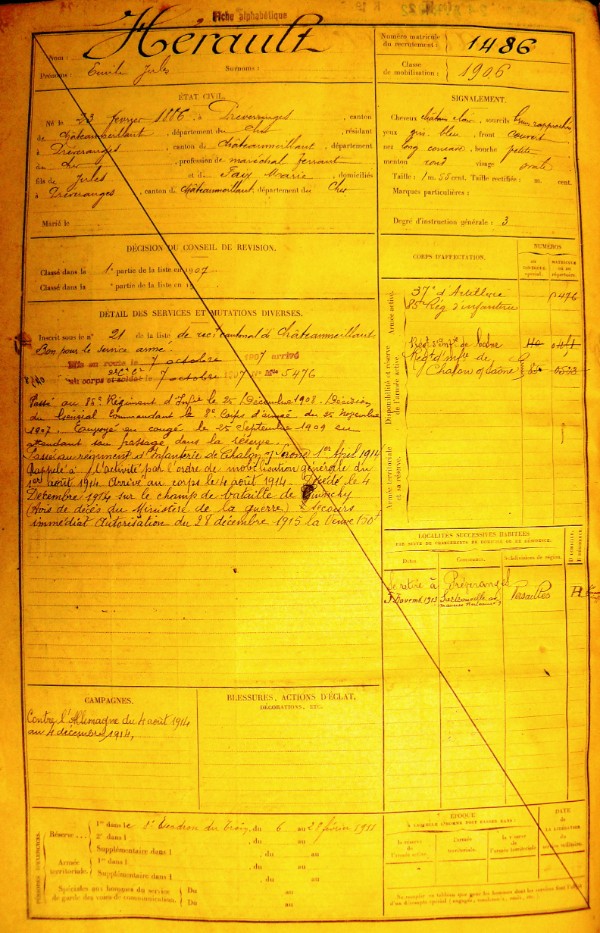 Fiche alphabétique
Hérault
Nom :
Prénoms : Emile Jules Surnoms :
Numéro matricule
du recrutement :
1486
Classe
de mobilisation :
1906
ÉTAT CIVIL.
Né le 23 février 1886, à Préveranges, canton
de Châteaumeillant, département du Cher, résidant
à Préveranges, canton de Châteaumeillant, département
du Cher, profession de maréchal ferrant
fils de Jules et de Faix Marie, domiciliés
à Préveranges, canton de Châteaumeillant, département du Cher
Marié le
SIGNALEMENT.
Cheveux châtain clair, sourcils
yeux gris bleu, front couvert
nez long, bouche petite
menton rond visage ovale
Taille : 1 m. 55 cent. Taille rectifiée : m. cent.
Marques particulières :
Degré d'instruction générale : 3
DÉCISION DU CONSEIL DE REVISION.
Classé dans la 1e partie de la liste en 1907
Classé dans la partie de la liste en 19
DÉTAIL DES SERVICES ET MUTATIONS DIVERSES.
Inscrit sous le n° 21 de la liste de rect cantonal de Châteaumeillant
Bon pour le service armé
Mis en route le 7 octobre 1907 arrivé
au corps et soldat le 7 octobre 1907 Nº Mle 5476
Passé au 85e Régiment d'Infie le 25 Décembre 1908. Décision
du Général Commandant le 8e Corps d'armée du 25 novembre
1907. Envoyé en congé le 25 Septembre 1909 en
attendant son passage dans la réserve.
Passé au régiment d'Infanterie de Chalon s/ Saône 1er Avril 1914
Rappelé à l'activité par l'ordre de mobilisation générale du
1er août 1914. Arrivé au corps le 4 août 1914. Décédé le 4
Décembre 1914 sur le champ de bataille de
(Avis de décès du Ministère de la guerre) Secours
immédiat Autorisation du 28 décembre 1915 la Veuve 150f
CORPS D'AFFECTATION.
NUMÉROS
Armée active.
37e d'Artillerie
5476
85e Rég d'infanterie
Disponibilité et réserve
de l'armée active.
Régt d'Infie de
Régt d'Infie de
Chalon s/ Saône
Armée territoriale
et sa réserve.
LOCALITÉS SUCCESSIVES HABITÉES
Dates. Communes. Subdivisions de région.
Se retire à Préveranges
Versailles
CAMPAGNES.
Contre l'Allemagne du 4 août 1914
au 4 décembre 1914.
BLESSURES, ACTIONS D'ÉCLAT,
DÉCORATIONS, ETC.
Réserve
1re dans le 8e Escadron du Train, du 6 au 28 février 1911
2e dans l , du au
Supplémentaire dans l , du au
Armée
territoriale.
1re dans l , du au
Supplémentaire dans l , du au
Spéciales aux hommes du service
de garde des voies de communication.
Du au
Du au
ÉPOQUE
la réserve
de l'armée active
l'armée
territoriale.
la réserve
de l'armée territoriale
DATE
DE LA LIBÉRATION
du service militaire.